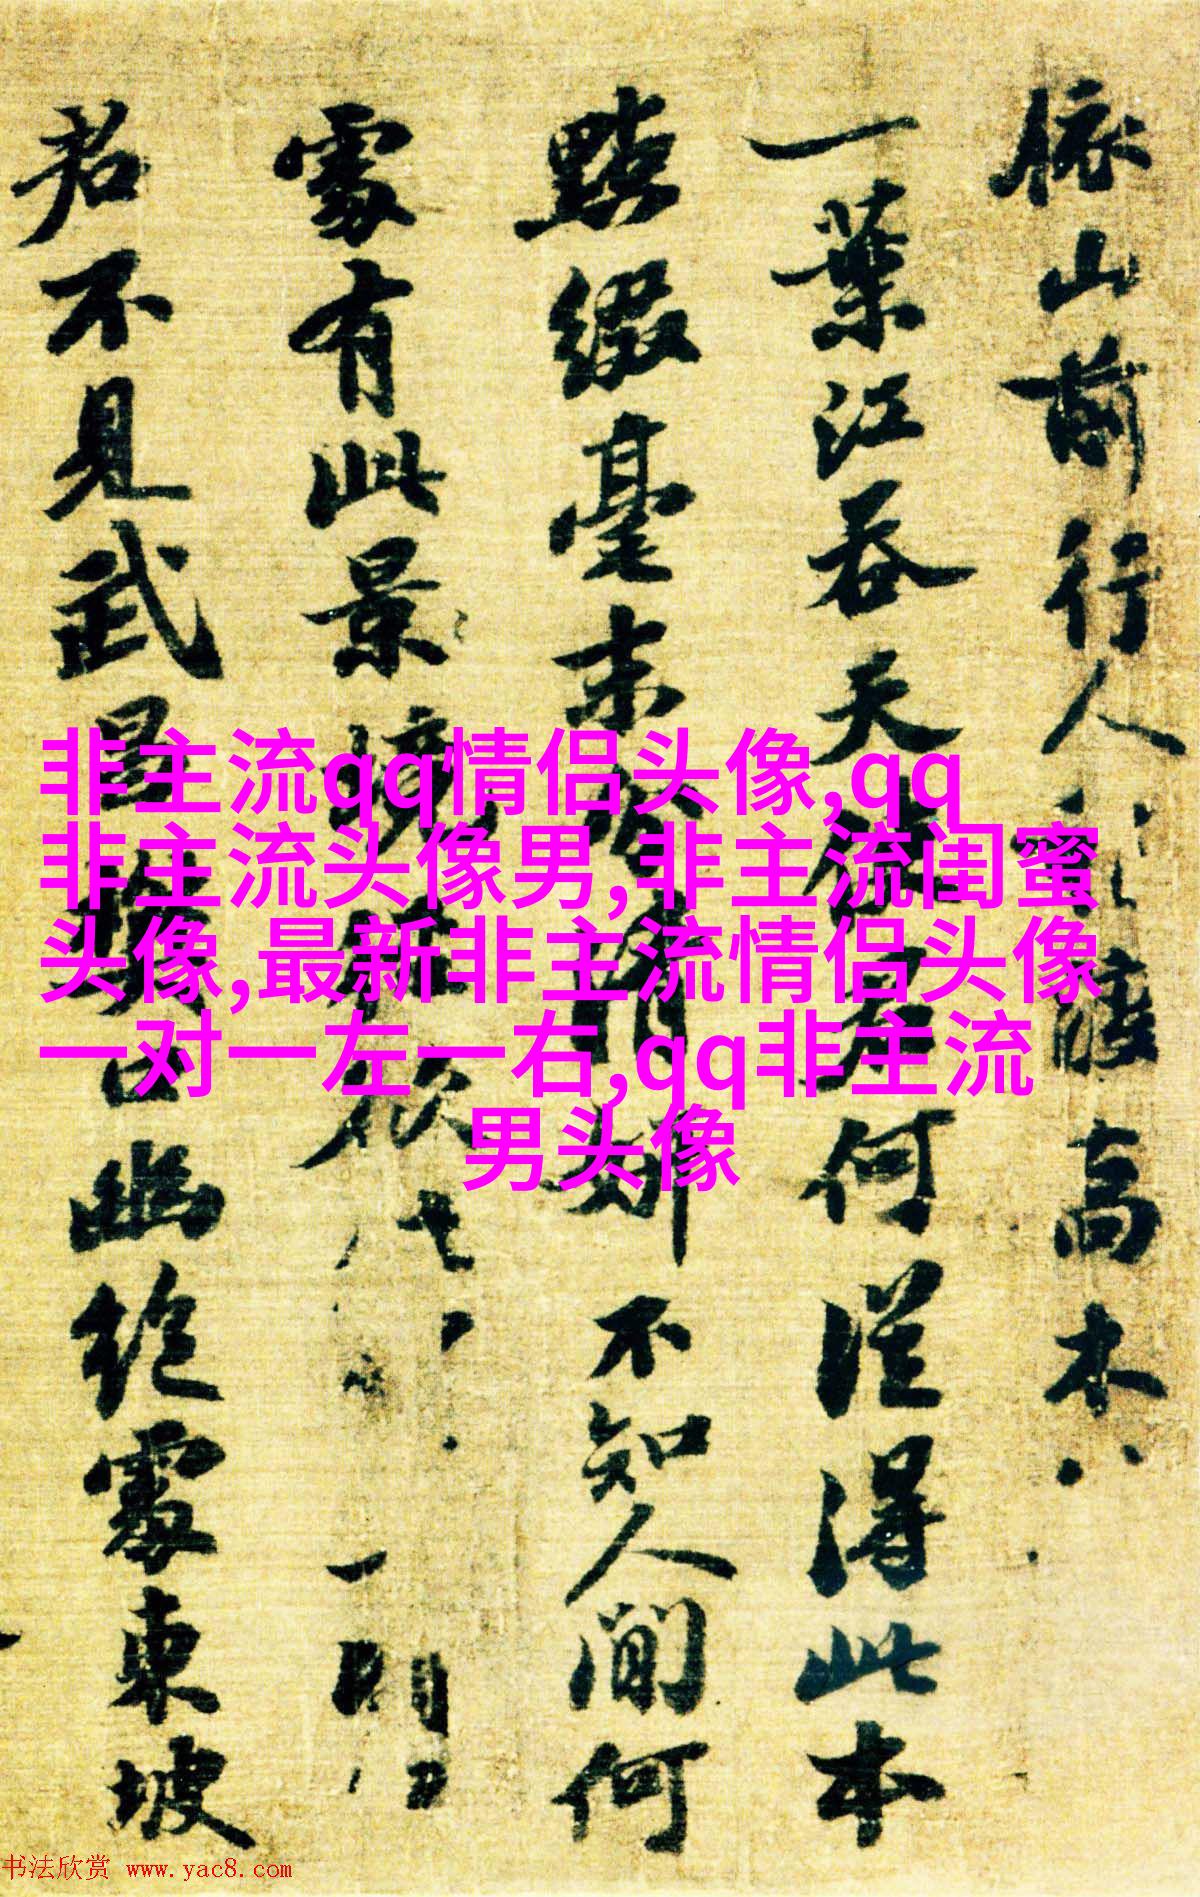 山前行人度高木
一葉江吞天使君何從得此本
點綴毫末分清妍不知人間何
處有此景
君不見武昌樊口幽絕處東坡
非主流qq情侣头像,qq
非主流头像男,非主流闺蜜
头像,最新非主流情侣头像
一对一左一右,qq非主流
男头像
书法欣赏 www.yac8.com